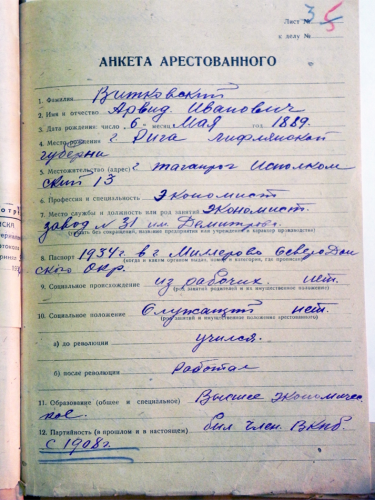 Лист № 3 5
к делу №
АНКЕТА АРЕСТОВАННОГО
1. Фамилия Витковский
2. Имя и отчество Арвид Иванович
3. Дата рождения: число 6 месяц Мая год 1889.
4. Место рождения г Рига Лифлянской
губерни
5. Местожительство (адрес) г Таганрог Исполком
ский 13
6. Профессия и специальность экономист
7. Место службы и должность или род занятий экономист
завод N 31 им Демитрова
8. Паспорт 1934г в г Милерово Северо Дон
(когда и каким органом выдан, номер, категория, где прописан)
ского окр.
9. Социальное происхождение из рабочих. нет.
(род занятий родителей и их имущественное положение)
10. Социальное положение Служащий нет.
(род занятий и имущественное положение арестованного)
а) до революции учился.
б) после революции Работал
11. Образование (общее и специальное) Высшее экономичес
кое.
12. Партийность (в прошлом и в настоящем) был член ВКПб.
с 1908г.